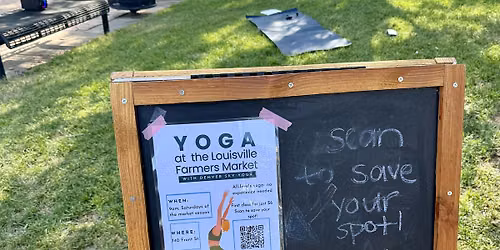 YOGA
at the Louisville
Farmers Market
WITH DENVER SKY YOGA
All levels yoga: no
experience needed
WHEN:
9am, Saturdays at
the market season
First class for just $6
Scan to save your
spot!
WHERE:
740 Front St
scan
to save
your
spot!